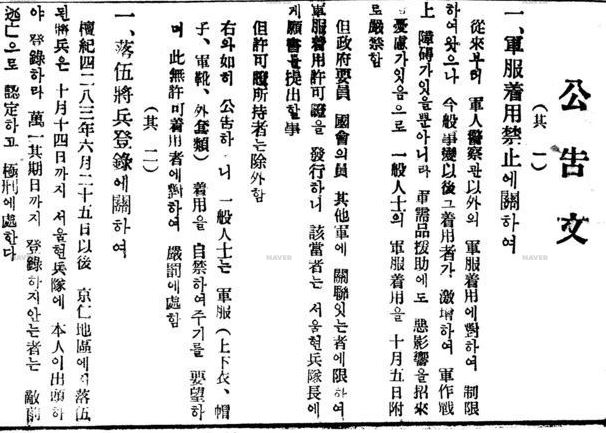 公告文
(其一)
一、軍服着用禁止에關하여
從來부터 軍人警察官以外의 軍服着用에對하여 制限
하여왓으나 今般事變以後그着用者가 激增하여 軍作戰
上 障碍가잇을뿐아니라 軍需品援助에도 惡影響을招來
할憂慮가잇음으로 一般人士의 軍服着用을 十月五日附
로嚴禁함
但政府要員 國會의員 其他軍에 關聯잇는者에限하여
軍服着用許可證을 發行하니 該當者는 서울헌兵隊長에
게願書를提出할事
但許可證所持者는除外함
右와如히 公告하 니 一般人士는 軍服(上下衣、帽
子、軍靴、外套類) 着用을 自禁하여주기를 要望하
며 此無許可着用者에對하여 嚴罰에處함
(其二)
一、落伍將兵登錄에關하여
檀紀四二八三年六月二十五日以後 京仁地區에서落伍
된將兵은 十月十四日까지 서울헌兵隊에 本人이出頭하
야 登錄하라 萬一其期日까지 登錄하지안는者는 敵前
逃亡으로 認定하고 極刑에處한다
NAVER
NAVER
NAVER